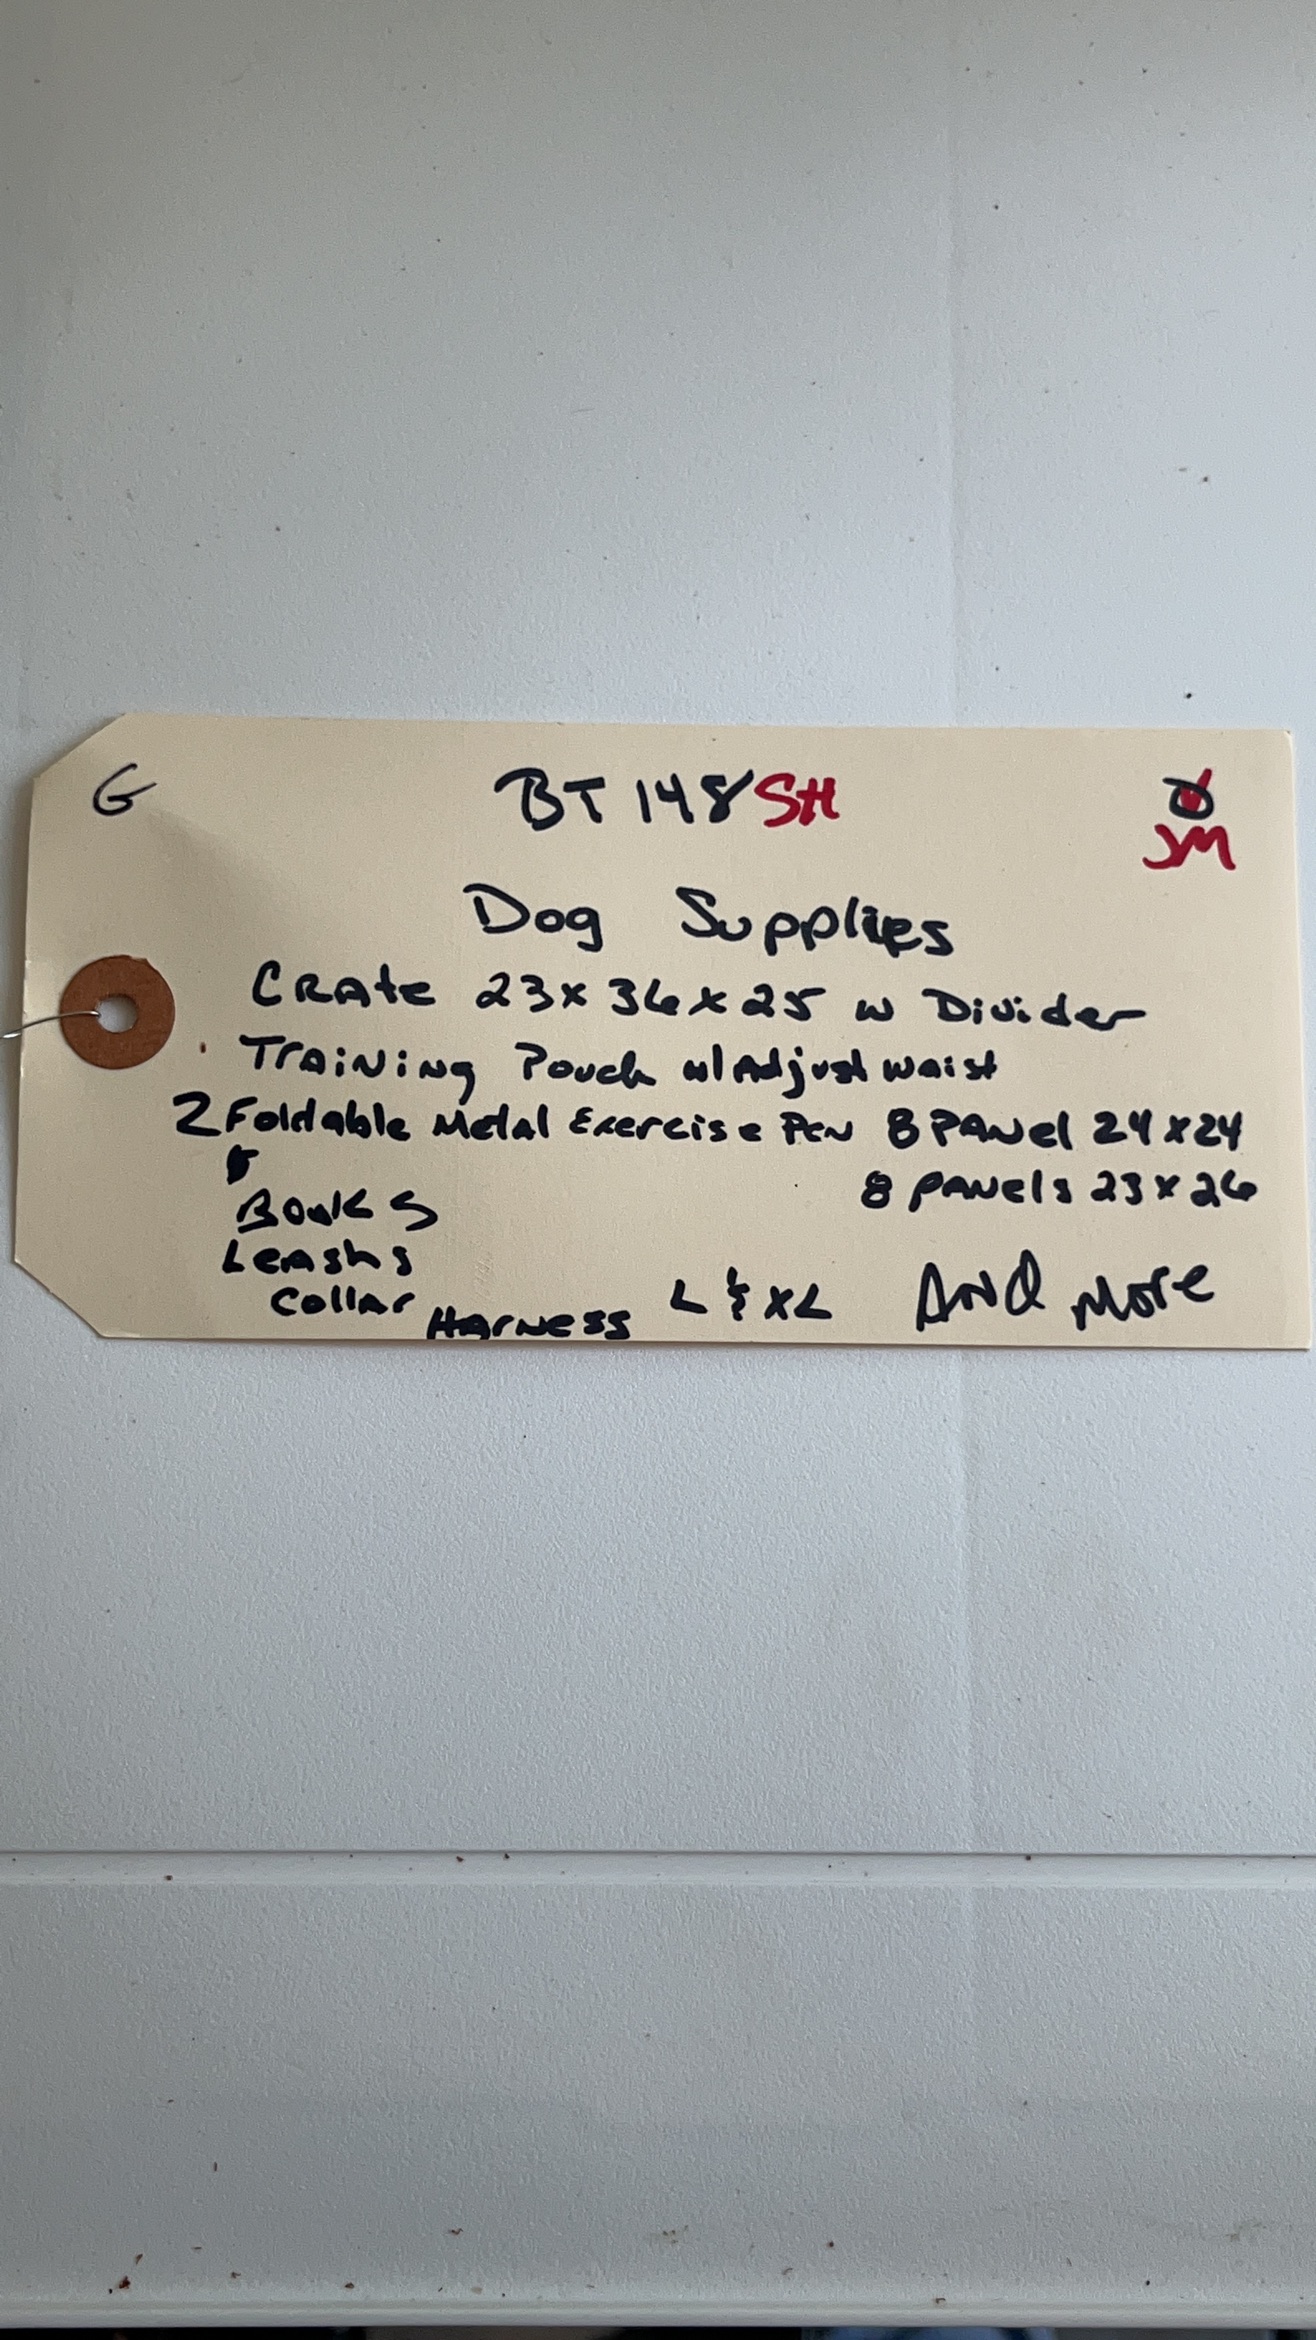 G
BT 148 SH
JM
Dog Supplies
CRAte 23x36x25 w Divider
TrAiNiNg Pouch w/Adjust waist
2 Foldable Metal Exercise PeN 8 PANel 24x24
8 PANels 23x26
Books
LeAshs
Collar
HArNess L & XL
ANd More